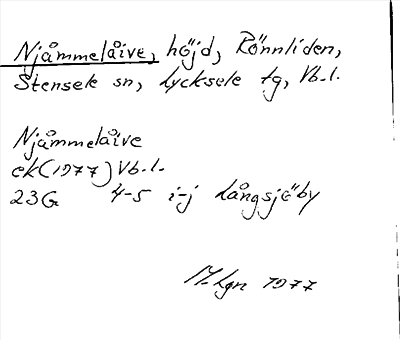 Njåmmelåive, höjd, Rönnliden,
Stensele sn, Lycksele tg, Vb.l.
Njåmmelåive
ek (1977) Vb.l.
23G 4-5 i-j Långsjöby
1977